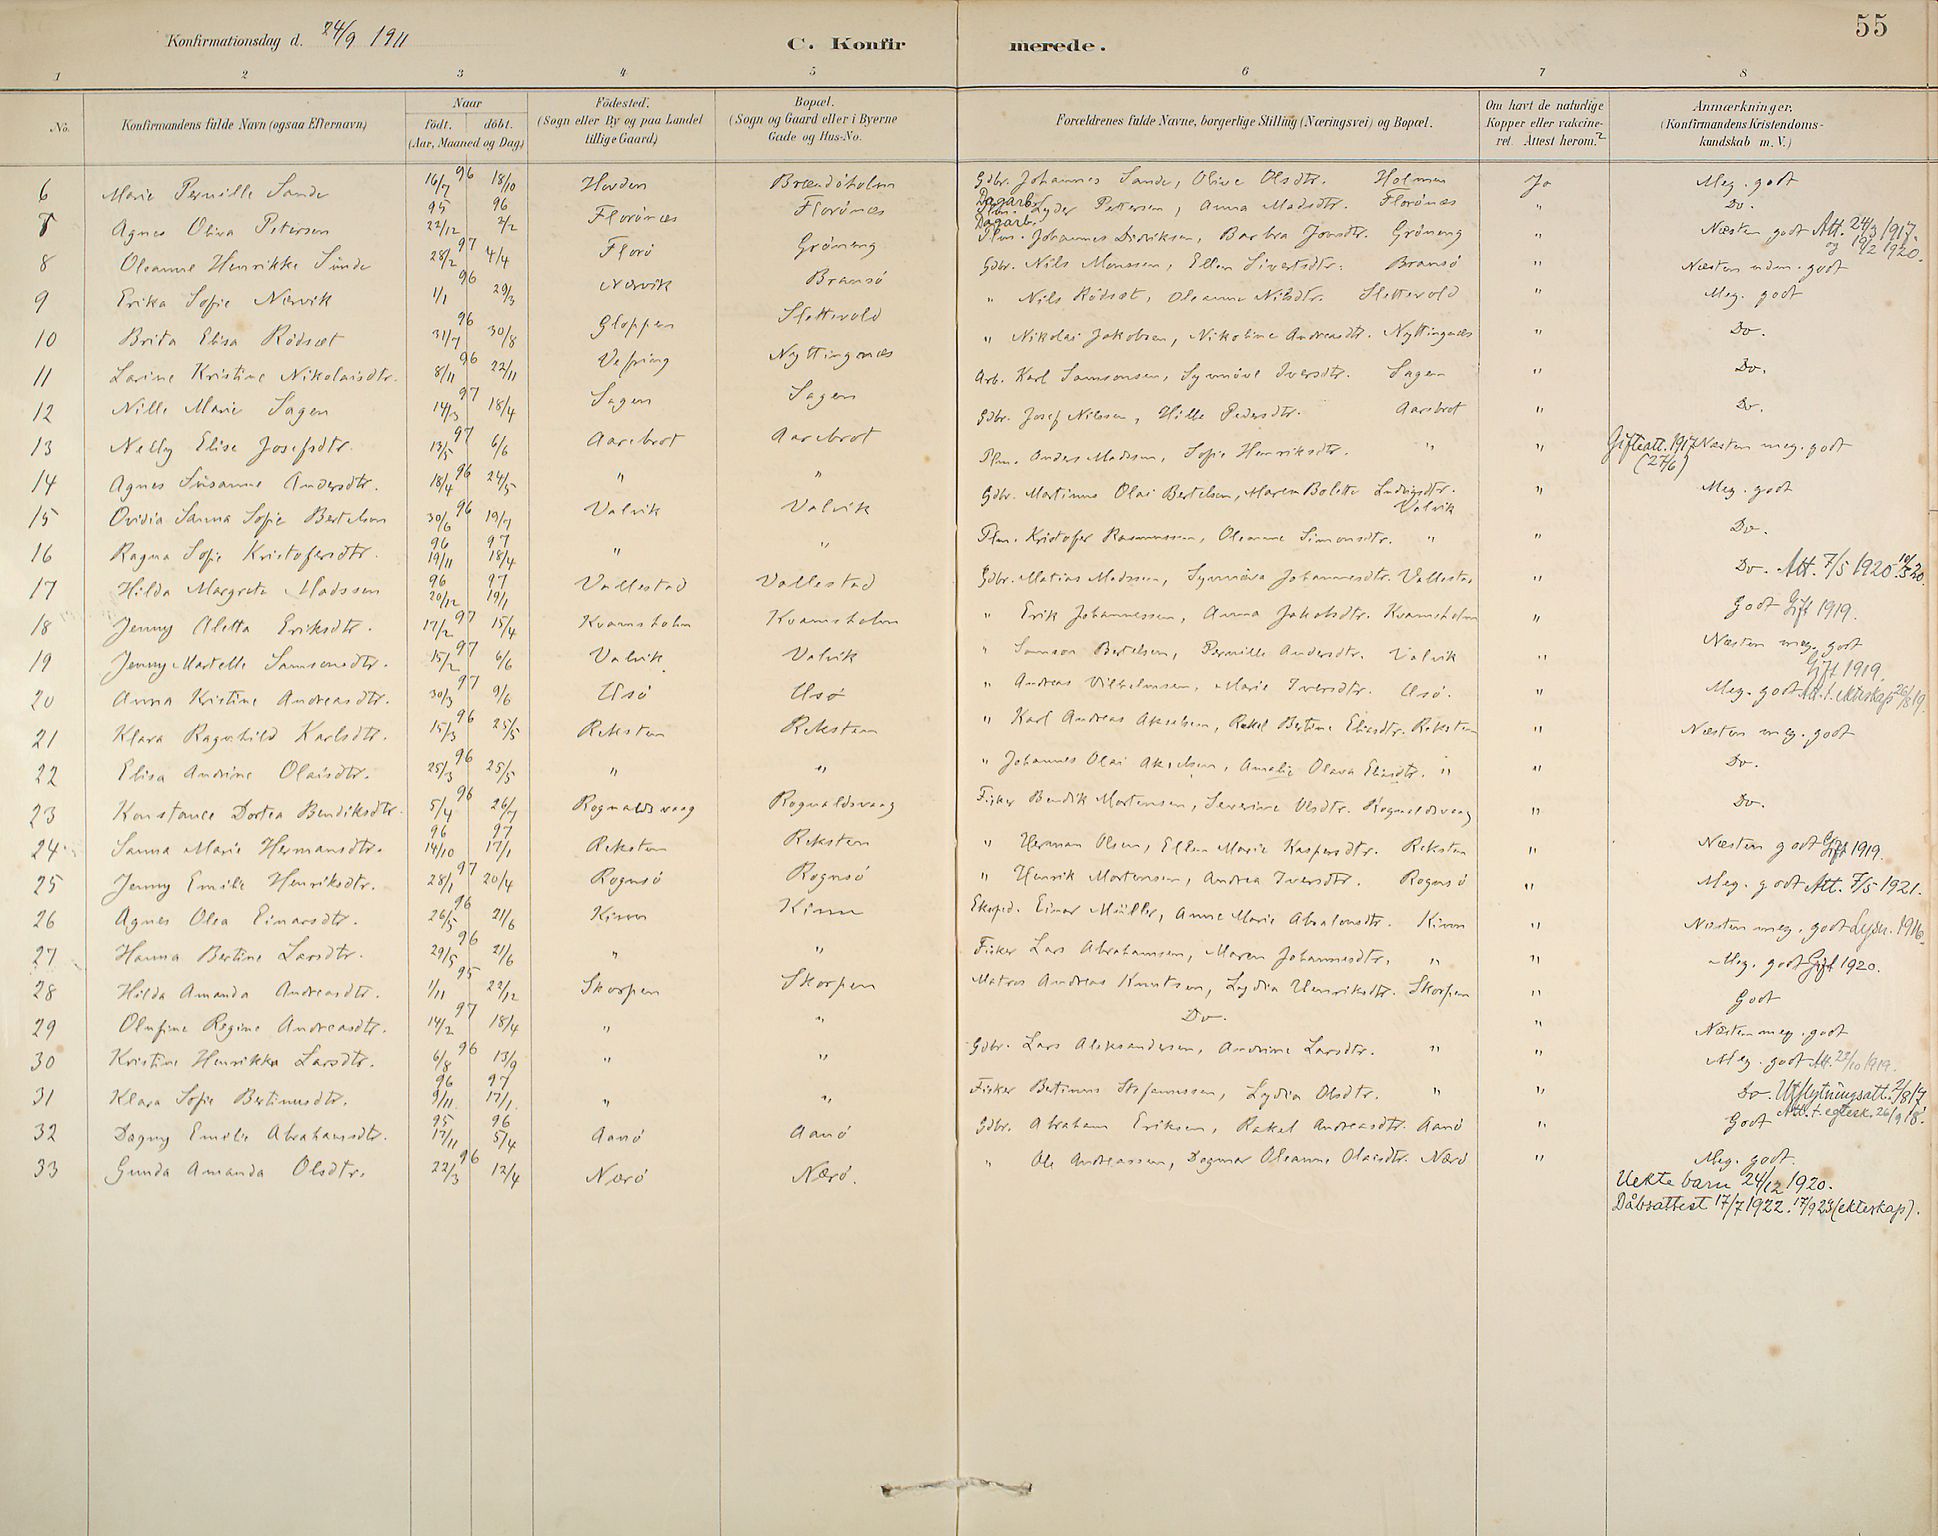 Konfirmationsdag d. 24/9 1911
C. Konfirmerede.
55
1 2 3 4 5 6 7 8
No. Konfirmandens fulde Navn (ogsaa Efternavn) Naar födt. döbt. (Aar, Maaned og Dag) Födested. (Sogn eller By og paa Landet tillige Gaard) Bopæl. (Sogn og Gaard eller i Byerne Gade og Hus-No. Forældrenes fulde Navne, borgerlige Stilling (Næringsvei) og Bopæl. Om havt de naturlige Kopper eller vakcineret. Attest herom. Anmærkninger. (Konfirmandens Kristendomskundskab m. V.)
6 Marie Pernille Sande 16/7 96 18/10 Hovden Brændöholm Gdbr. Johannes Sande, Olive Olsdtr. Holmen Ja Meg. godt
7 Agnes Oliva Petersen 95 22/12 96 2/2 Florönæs Florönæs Dagarb. Lyder Pettersen, Anna Madsdtr. Florönæs " Do.
8 Oleanne Henrikke Sunde 28/2 97 4/4 Florö Gröneng Dagarb. Plm. Johannes Didriksen, Barbra Jonsdtr. Gröneng " Næsten godt Att. 24/3 1917. og 19/2 1920.
9 Erika Sofie Nærvik 1/1 96 29/3 Nærvik Bransö Gdbr. Nils Monssen, Ellen Sivertsdtr. Bransö " Næsten udm. godt
10 Brita Elisa Rödsæt 31/7 96 30/8 Gloppen Slettevold " Nils Rödsæt, Oleanne Nilsdtr. Slettevold " Meg. godt
11 Larine Kristine Nikolaisdtr. 8/11 96 22/11 Vefring Nyttingnæs " Nikolai Jakobsen, Nikoline Andreasdtr. Nyttingnæs " Do.
12 Nille Marie Sagen 14/3 97 18/4 Sagen Sagen Arb. Karl Samsonsen, Synnöve Iversdtr. Sagen " Do.
13 Nelly Elise Josefsdtr. 13/5 97 6/6 Aarebrot Aarebrot Gdbr. Josef Nilssen, Hille Pedersdtr. Aarebrot " Do.
14 Agnes Susanne Andersdtr. 18/4 96 24/5 " " Plm. Anders Madssen, Sofie Henriksdtr. " " Gifteatt. 1917 (27/6) Næsten meg. godt
15 Ovidia Sanna Sofie Bertelsen 30/6 96 19/7 Valvik Valvik Gdbr. Martinus Olai Bertelsen, Maren Bolette Ludvigsdtr. Valvik " Meg. godt
16 Ragna Sofie Kristofersdtr. 96 19/11 97 18/4 " " Plm. Kristofer Rasmussen, Oleanne Simonsdtr. " " Do.
17 Hilda Margrete Madssen 96 20/12 97 19/1 Vallestad Vallestad Gdbr. Matias Madssen, Synnöva Johannesdtr. Vallestad " Do. Att. 7/5 1920. 10/5 20.
18 Jenny Aletta Eriksdtr. 17/2 97 15/4 Kvamsholm Kvamsholm " Erik Johannessen, Anna Jakobsdtr. Kvamsholm " Godt Gift 1919.
19 Jenny Martelle Samsonsdtr. 15/2 97 6/6 Valvik Valvik " Samson Bertelsen, Pernille Andersdtr. Valvik " Næsten meg. godt Gift 1919.
20 Anna Kristine Andreasdtr. 30/3 97 9/6 Usö Usö " Andreas Vilhelmsen, Marie Iversdtr. Usö. " Meg. godt Att. t. ekteskap 26/8 19.
21 Klara Ragnhild Karlsdtr. 15/3 96 25/5 Reksten Reksten " Karl Andreas Akselsen, Rakel Bertine Eliasdtr. Reksten " Næsten meg. godt
22 Elisa Andrine Olaisdtr. 25/3 96 25/5 " " " Johannes Olai Akselsen, Amalie Olava Eliasdtr. " " Do.
23 Konstance Dortea Bendiksdtr. 5/4 96 26/7 Rognaldsvaag Rognaldsvaag Fisker Bendik Mortensen, Severine Olsdtr. Rognaldsvaag " Do.
24 Sanna Marie Hermansdtr. 96 14/10 97 17/1 Reksten Reksten " Herman Olsen, Ellen Marie Kaspersdtr. Reksten " Næsten godt Gift 1919.
25 Jenny Emilie Henriksdtr. 28/1 97 20/4 Rognsö Rognsö " Henrik Mortensen, Andrea Iversdtr. Rognsö " Meg. godt Att. 7/5 1921.
26 Agnes Olea Einarsdtr. 26/5 96 21/6 Kinn Kinn Eksped. Einar Müller, Anne Marie Absalonsdtr. Kinn " Næsten meg. godt Lysn. 1916.
27 Hanna Bertine Larsdtr. 29/5 96 21/6 " " Fisker Lars Abrahamsen, Maren Johannesdtr. " " Meg. godt Gift 1920.
28 Hilda Amanda Andreasdtr. 1/11 95 22/12 Skorpen Skorpen Matros Andreas Knutsen, Lydia Henriksdtr. Skorpen " Godt
29 Olufine Regine Andreasdtr. 14/2 97 18/4 " " Do. " Næsten meg. godt
30 Kristine Henrikka Larsdtr. 6/8 96 13/9 " " Gdbr. Lars Aleksandersen, Andrine Larsdtr. " " Meg. godt Att. 22/10 1919.
31 Klara Sofie Bertinusdtr. 96 9/11 97 17/1 " " Fisker Bertinus Stefanussen, Lydia Olsdtr. " " Do. Utflytningsatt. 2/8 17
32 Dagny Emilie Abrahamsdtr. 95 17/11 96 5/4 Aanö Aanö Gdbr. Abraham Eriksen, Rakel Andreasdtr. Aanö " Godt Att. t. egtesk. 26/9 18.
33 Gunda Amanda Olsdtr. 22/3 96 12/4 Nærö Nærö. " Ole Andreassen, Dagmar Oleanne Olaisdtr. Nærö " Meg. godt.
Uekte barn 24/12 1920.
Dåbsattest 17/7 1922. 17/9 23 (ekteskap).